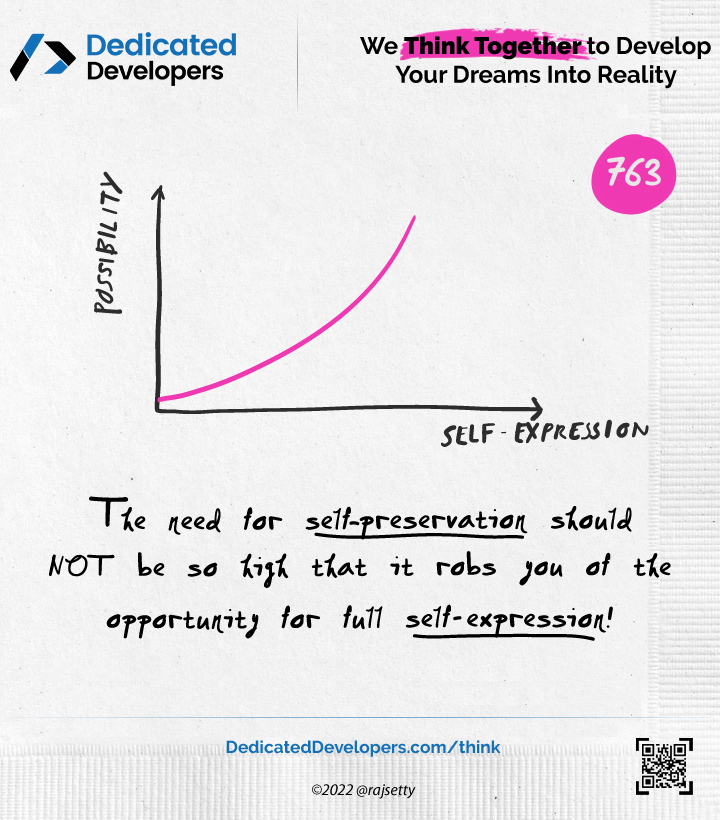 Dedicated
Developers
We Think Together to Develop
Your Dreams Into Reality
763
POSSIBILITY
SELF-EXPRESSION
The need for self-preservation should
NOT be so high that it robs you of the
opportunity for full self-expression!
DedicatedDevelopers.com/think
©2022 @rajsetty